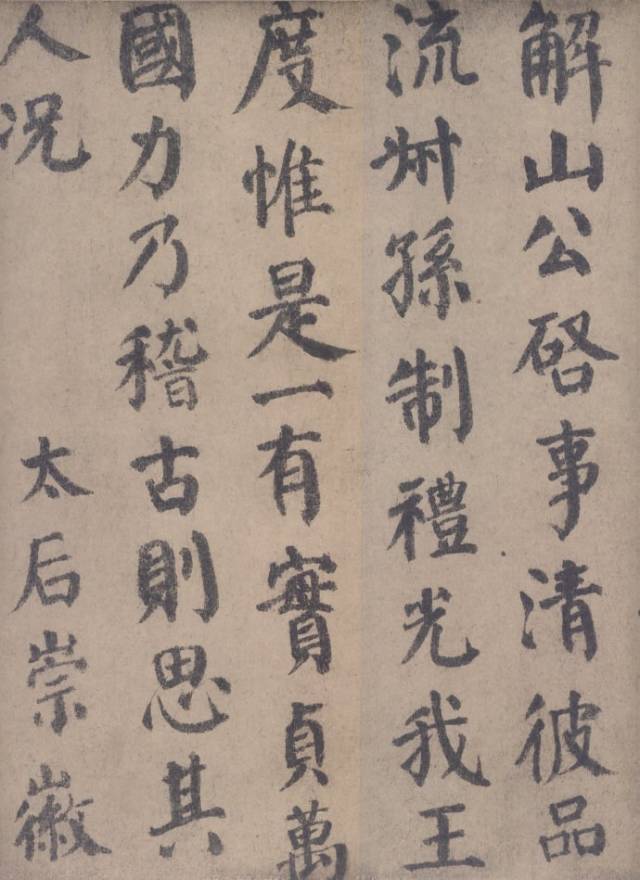 解山公啓事清彼品
流叔孫制禮光我王
度惟是一有實貞萬
國力乃稽古則思其
人况　太后崇徽